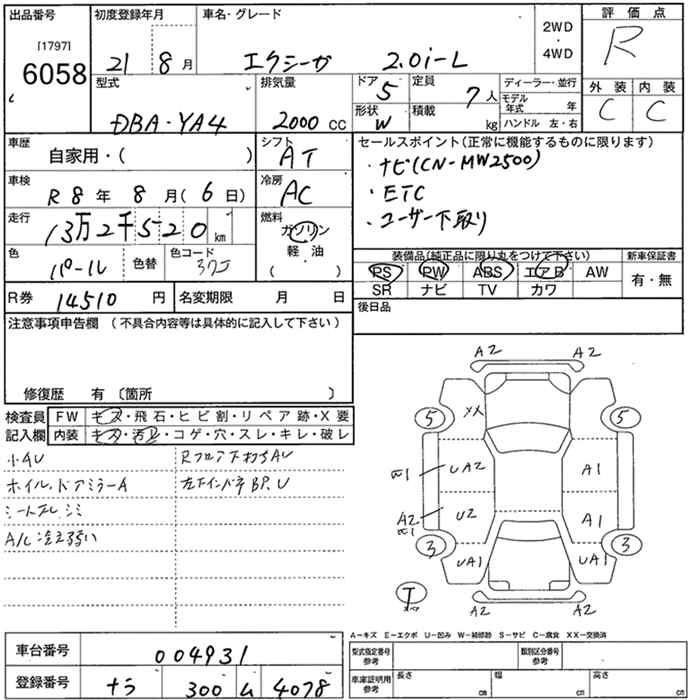 出品番号
[1797]
6058
初度登録年月
21 8月
車名・グレード
エクシーガ 2.0i-L
2WD
・
4WD
評価点
R
外装 内装
C C
型式
DBA・YA4
排気量
2000 CC
ドア 5
形状 W
定員 7人
積載 kg
ディーラー・並行
モデル年式 年
ハンドル 左・右
車歴
自家用・( )
シフト
AT
セールスポイント(正常に機能するものに限ります)
・ナビ(CN-MW2500)
・ETC
・ユーザー下取り
車検
R8年 8月(6日)
冷房
AC
走行
13万2千520 km
燃料
ガソリン
軽油
( )
色
パール
色替
色コード
37J
装備品(純正品に限り丸をつけて下さい)
PS PW ABS エアB AW
SR ナビ TV カワ
新車保証書
有・無
R券 14510 円
名変期限 月 日
後日品
注意事項申告欄 (不具合内容等は具体的に記入して下さい)
修復歴 有 〔箇所 〕
検査員
記入欄
FW キズ・飛石・ヒビ割・リペア跡・X要
内装 キズ・汚レ・コゲ・穴・スレ・キレ・破レ
小AU
Rフロア下打ちAU
ホイル、ドアミラーA
左下インナーBP、U
シートスレ シミ
A/C冷え弱い
A2 A2
5 5
UA2 A1
A2 U2 A1
3 3
UA1 UA1
T
A2 A2
A−キズ E−エクボ U−凹み W−補修跡 S−サビ C−腐食 XX−交換済
車台番号 004931
登録番号 ナラ 300 ム 4078
型式指定番号
参考
類別区分番号
参考
車庫証明用
参考
長さ cm 幅 cm 高さ cm